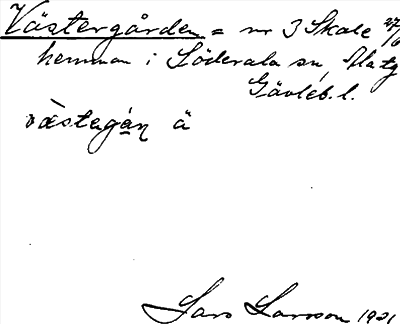 Västergården = nr 3 Skale 27/6
hemman i Söderala sn
Gävleb. l.
västagán ä
Lars Larsson 1921